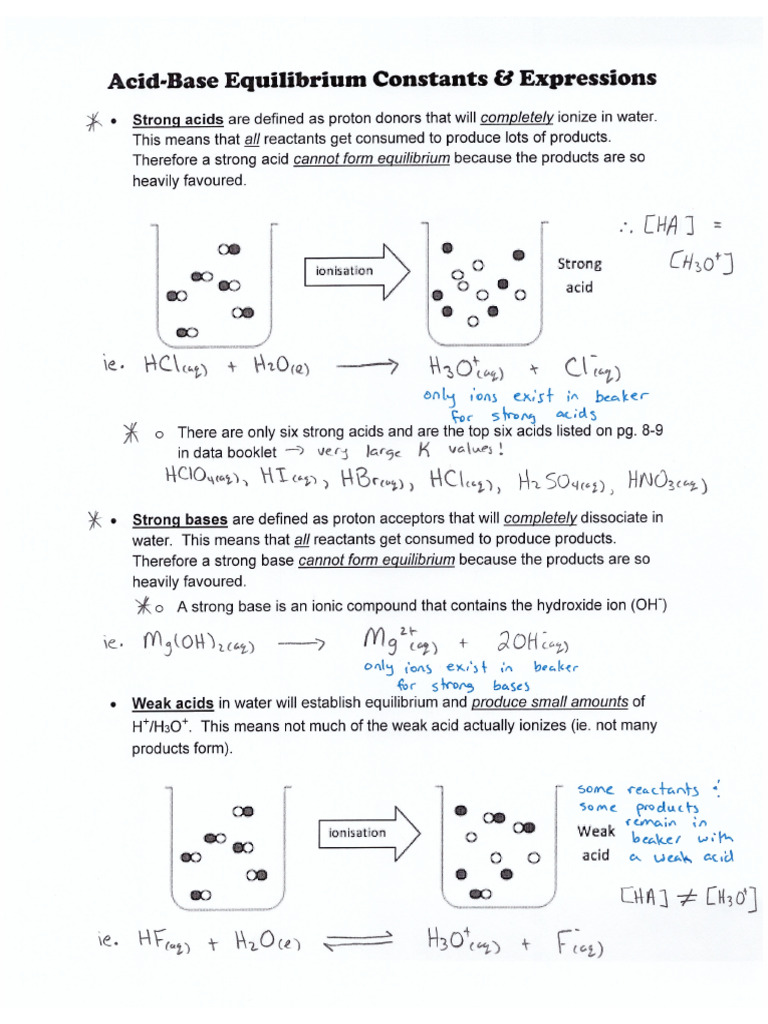 Acid-Base Equilibrium Constants & Expressions
* • Strong acids are defined as proton donors that will completely ionize in water.
This means that all reactants get consumed to produce lots of products.
Therefore a strong acid cannot form equilibrium because the products are so
heavily favoured.
ionisation
Strong
acid
∴ [HA] =
[H₃O⁺]
ie. HCl(aq) + H₂O(l) → H₃O⁺(aq) + Cl⁻(aq)
only ions exist in beaker
for strong acids
* o There are only six strong acids and are the top six acids listed on pg. 8-9
in data booklet → very large K values!
HClO₄(aq), HI(aq), HBr(aq), HCl(aq), H₂SO₄(aq), HNO₃(aq)
* • Strong bases are defined as proton acceptors that will completely dissociate in
water. This means that all reactants get consumed to produce products.
Therefore a strong base cannot form equilibrium because the products are so
heavily favoured.
* o A strong base is an ionic compound that contains the hydroxide ion (OH⁻)
ie. Mg(OH)₂(aq) → Mg²⁺(aq) + 2OH⁻(aq)
only ions exist in beaker
for strong bases
• Weak acids in water will establish equilibrium and produce small amounts of
H⁺/H₃O⁺. This means not much of the weak acid actually ionizes (ie. not many
products form).
ionisation
Weak
acid
some reactants &
some products
remain in
beaker with
a weak acid
[HA] ≠ [H₃O⁺]
ie. HF(aq) + H₂O(l) ⇌ H₃O⁺(aq) + F⁻(aq)